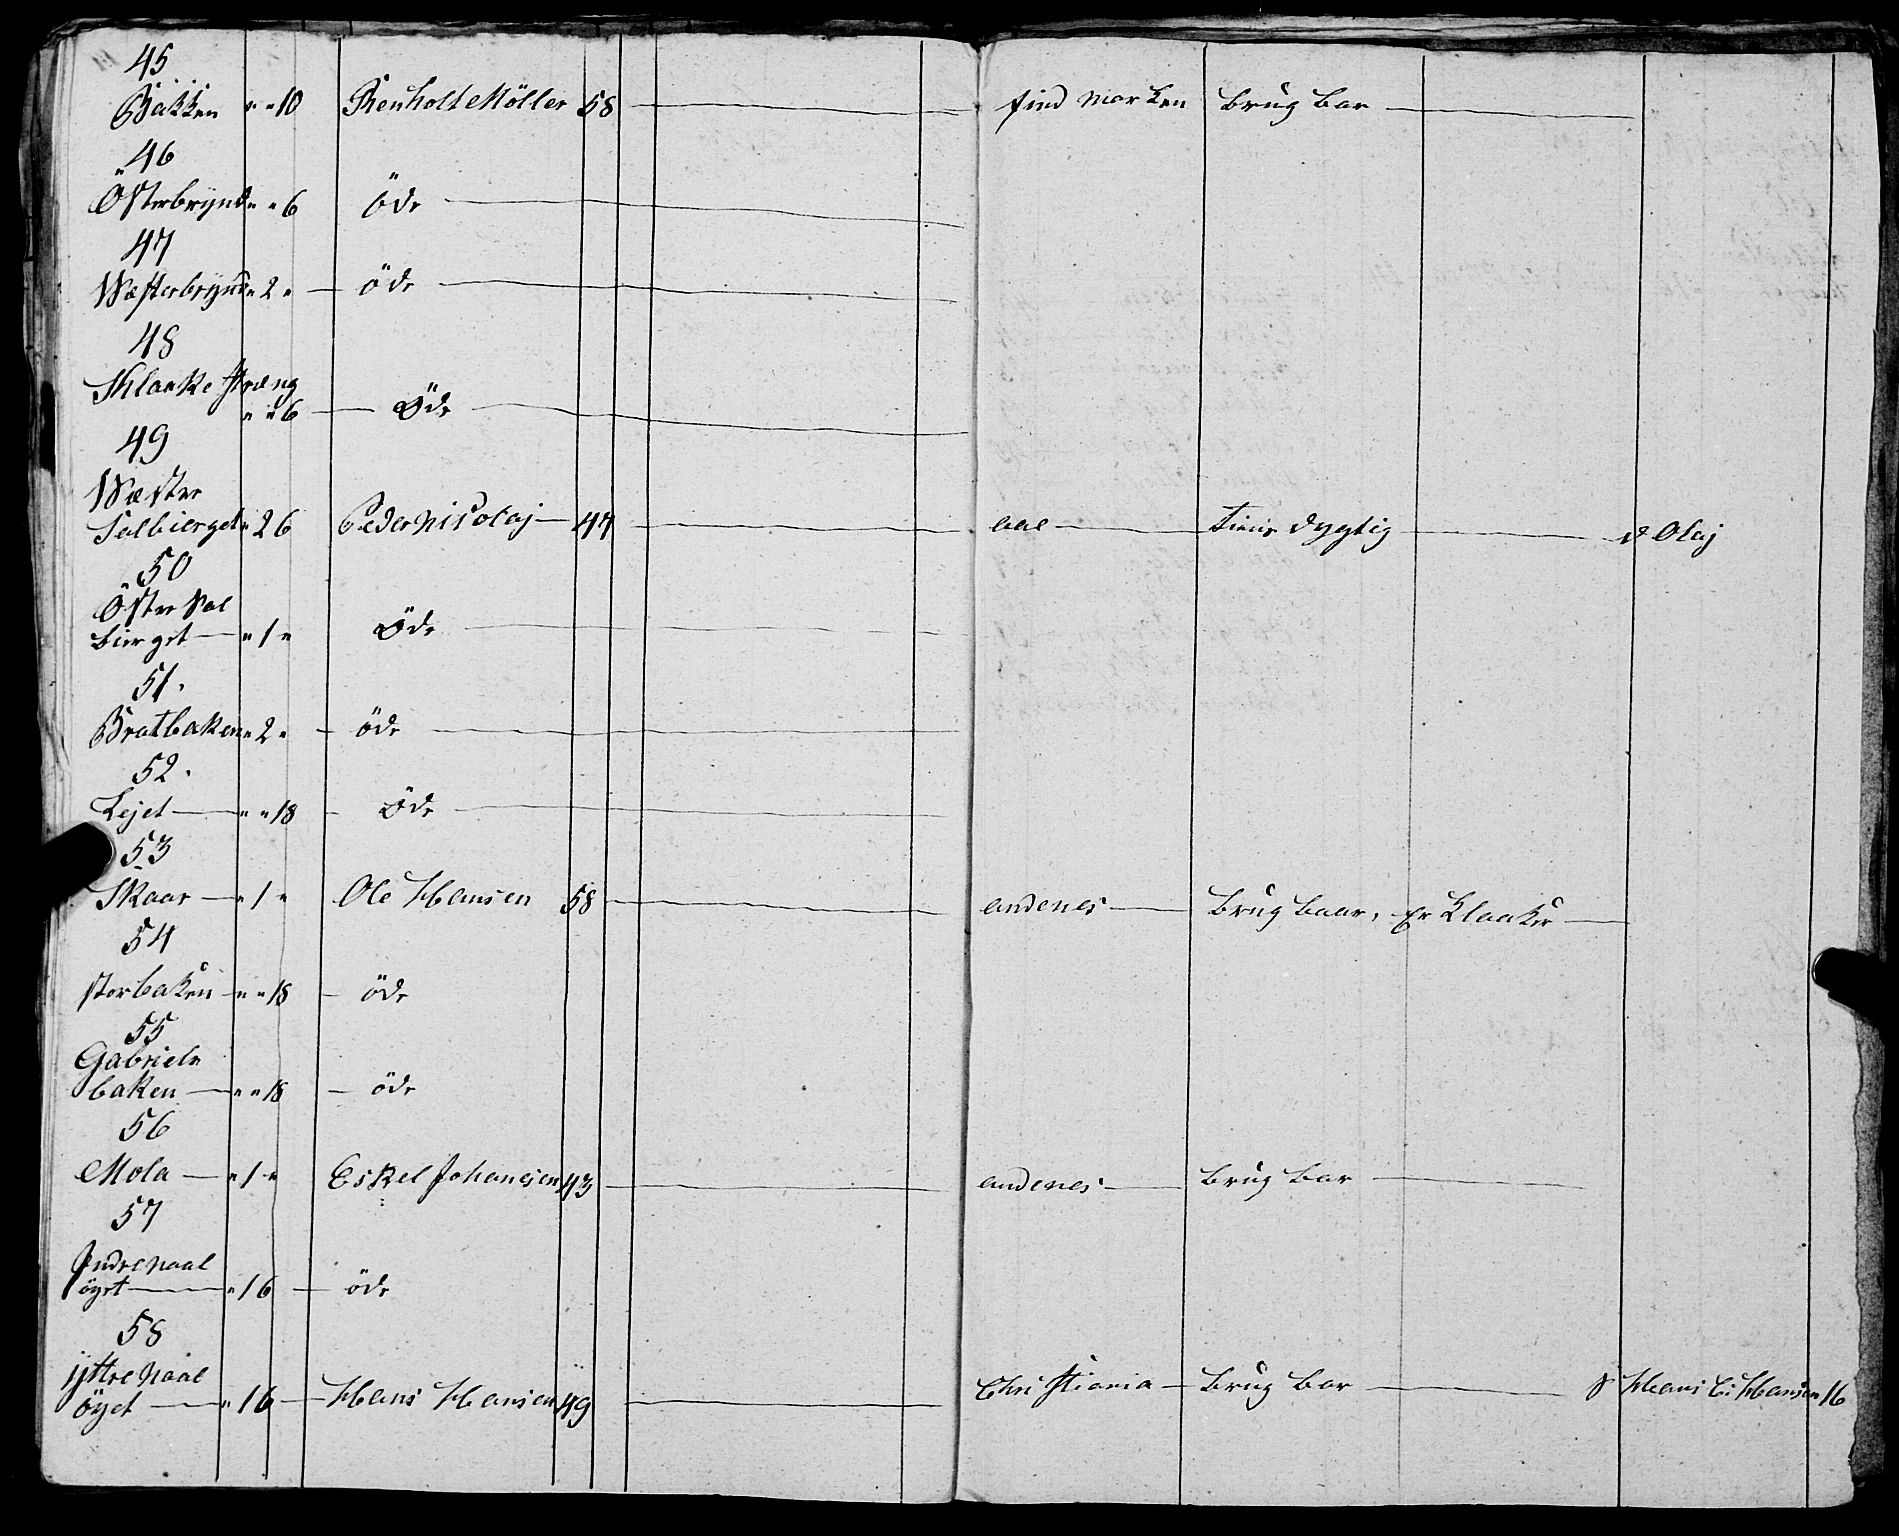 45
Bakken " " 10 Renholt Möller 58 — find marken brug bar —
46
Österbrynd " " 6 öde —
47
Wæsterbrynd " 2 " — öde —
48
Klaake stræng
" " 6 — Øde —
49
Wæstre
Salbierget " 26 Peder Nicolaj — 47 — aal — Tienis dygtig — d Olaj
50
Östre Sal
bierget — " 1 " Øde —
51.
Bratbaken " 2 " — öde —
52.
Lejet — " " 18 — Øde —
53
Skaar — " 1 " Ole Hansen 58 — andenes — brug baar, Er Klaaker —
54
storbaken — " " 18 — öde
55
Gabriels
baken — " " 18 — öde
56
Mola — " 1 " Eskel Johanesen 43 — andenes — brug bar —
57
Indre naal
öyet — " 16 — öde
58
yttre Naal
öyet — " 16 — Hans Hansen 49 — Christiania — brug bar — S Hans Hansen 16